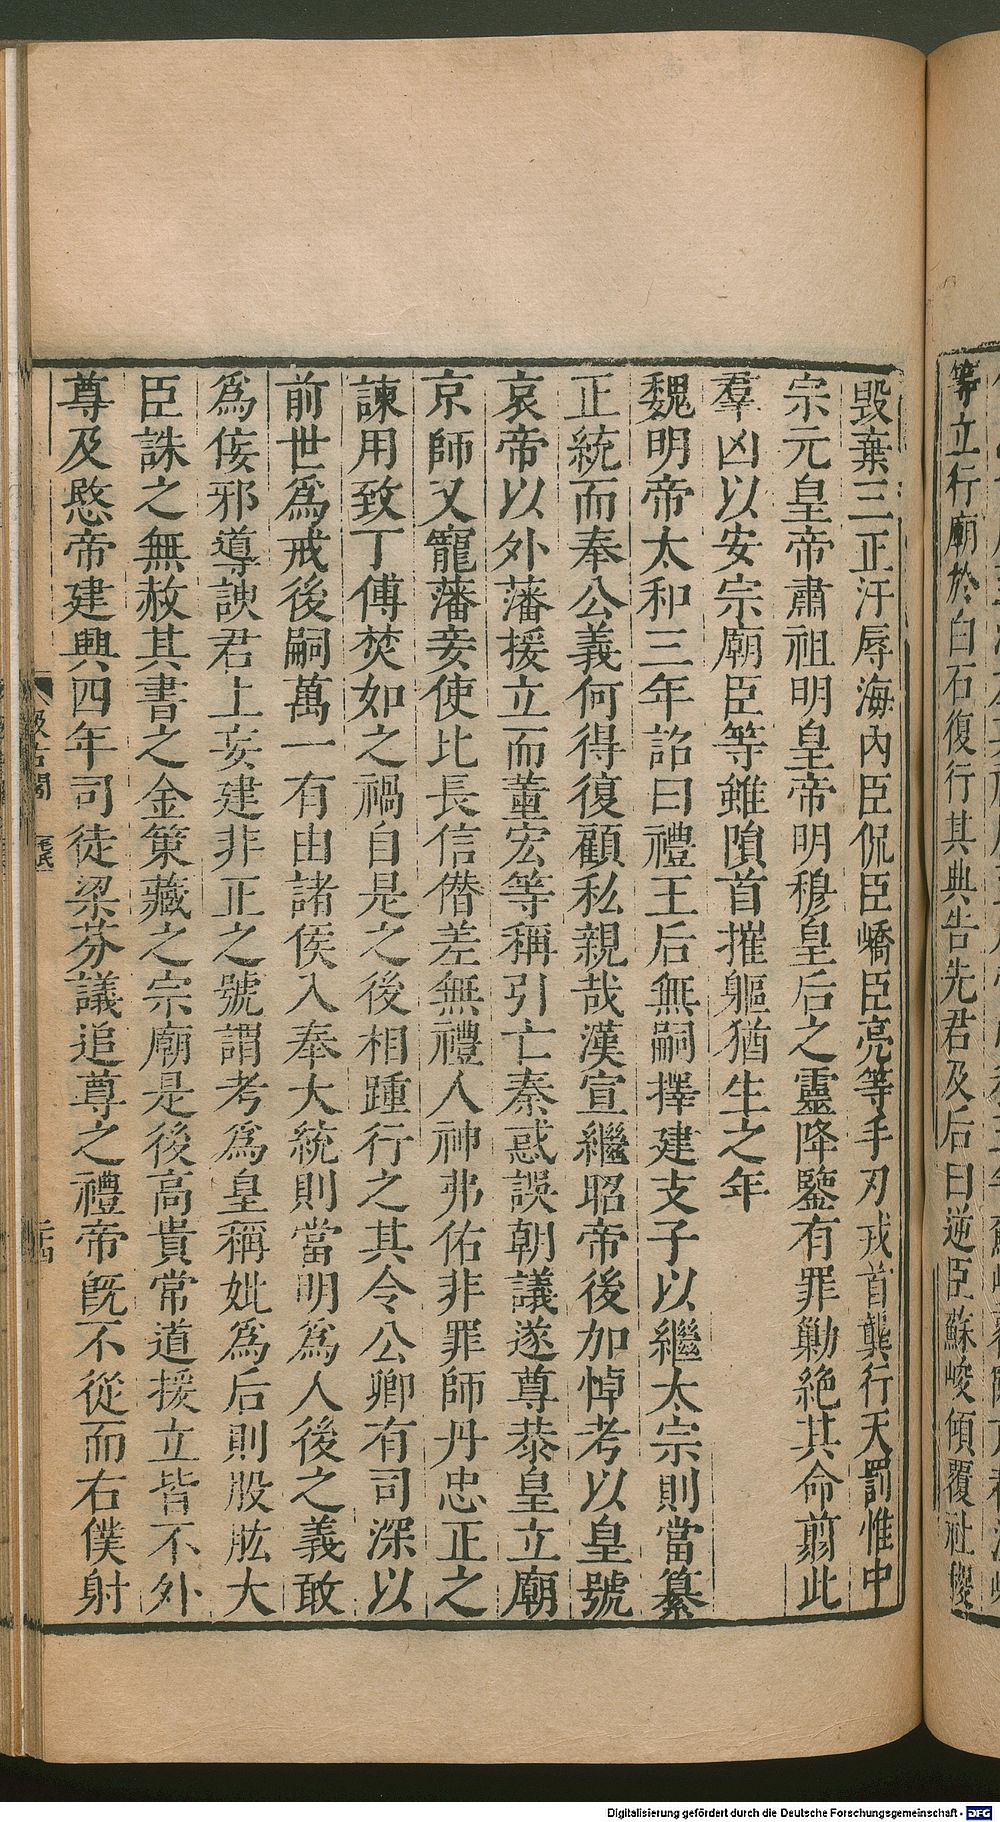 等立行廟於白石復行其典告先君及后曰逆臣蘇峻傾覆社稷
毀棄三正汙辱海內臣侃臣嶠臣亮等手刃戎首龔行天罰惟中
宗元皇帝肅祖明皇帝明穆皇后之靈降鑒有罪勦絕其命翦此
羣凶以安宗廟臣等雖隕首摧軀猶生之年
魏明帝太和三年詔曰禮王后無嗣擇建支子以繼太宗則當纂
正統而奉公義何得復顧私親哉漢宣繼昭帝後加悼考以皇號
哀帝以外藩援立而董宏等稱引亡秦惑誤朝議遂尊恭皇立廟
京師又寵藩妾使比長信僭差無禮人神弗佑非罪師丹忠正之
諫用致丁傅焚如之禍自是之後相踵行之其令公卿有司深以
前世爲戒後嗣萬一有由諸侯入奉大統則當明爲人後之義敢
爲佞邪導諛君上妄建非正之號謂考爲皇稱妣爲后則股肱大
臣誅之無赦其書之金策藏之宗廟是後高貴常道援立皆不外
尊及愍帝建興四年司徒梁芬議追尊之禮帝旣不從而右僕射
Digitalisierung gefördert durch die Deutsche Forschungsgemeinschaft - DFG